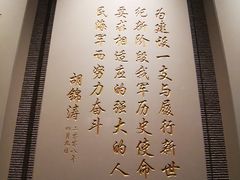 为建设一支与履行新世
纪新阶段我军历史使命
要求相适应的强大的人
民海军而努力奋斗
胡锦涛
二〇〇八年
四月九日